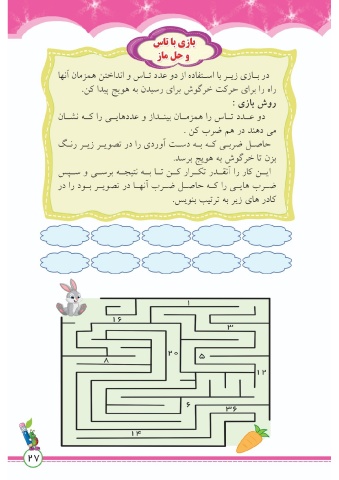 بازی با تاس
و حل ماز
در بـازی زیـر با اسـتفاده از دو عدد تـاس و انداختن همزمان آنها
راه را برای حرکت خرگوش برای رسیدن به هویج پیدا کن.
روش بازی :
دو عـدد تـاس را همزمـان بینـداز و عددهایـی را کـه نشـان
می دهند در هم ضرب کن .
حاصـل ضربـی کـه بـه دسـت آوردی را در تصویـر زیـر رنـگ
بزن تا خرگوش به هویج برسد.
ایـن کار را آنقـدر تکـرار کـن تـا بـه نتیجـه برسـی و سـپس
ضـرب هایـی را کـه حاصـل ضـرب آنهـا در تصویـر بـود را در
کادر های زیر به ترتیب بنویس.
۱
۱۶
۳
۲۰
۵
۸
۱۲
۶
۳۶
۱۴
۲۷